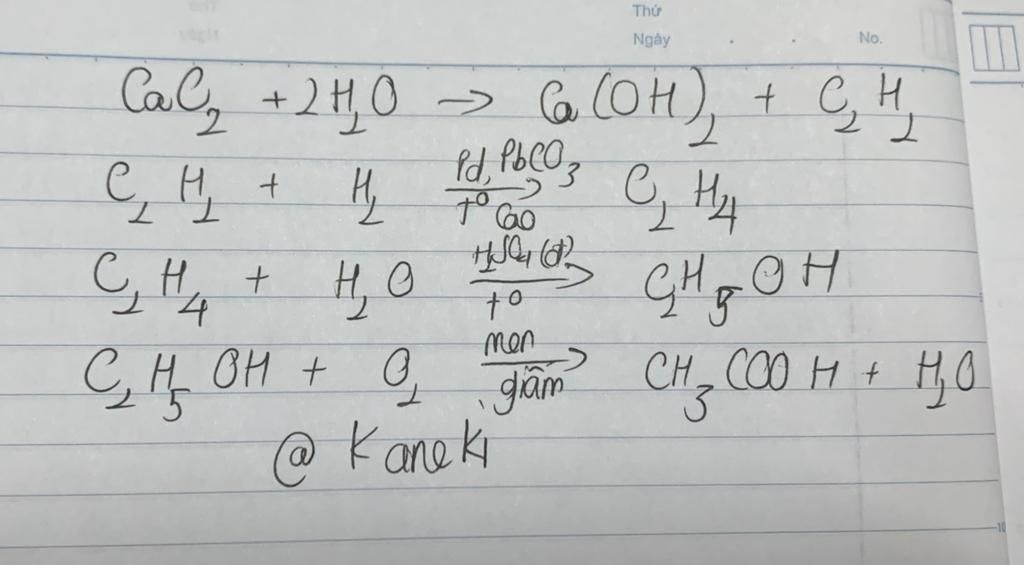 Thứ
Ngày . . No.
CaC₂ + 2H₂O → Ca(OH)₂ + C₂H₂
C₂H₂ + H₂ Pd, PbCO₃ → t° Cao C₂H₄
C₂H₄ + H₂O H₂SO₄ (đ) → t° C₂H₅OH
C₂H₅OH + O₂ men → giấm CH₃COOH + H₂O
@ Kaneki